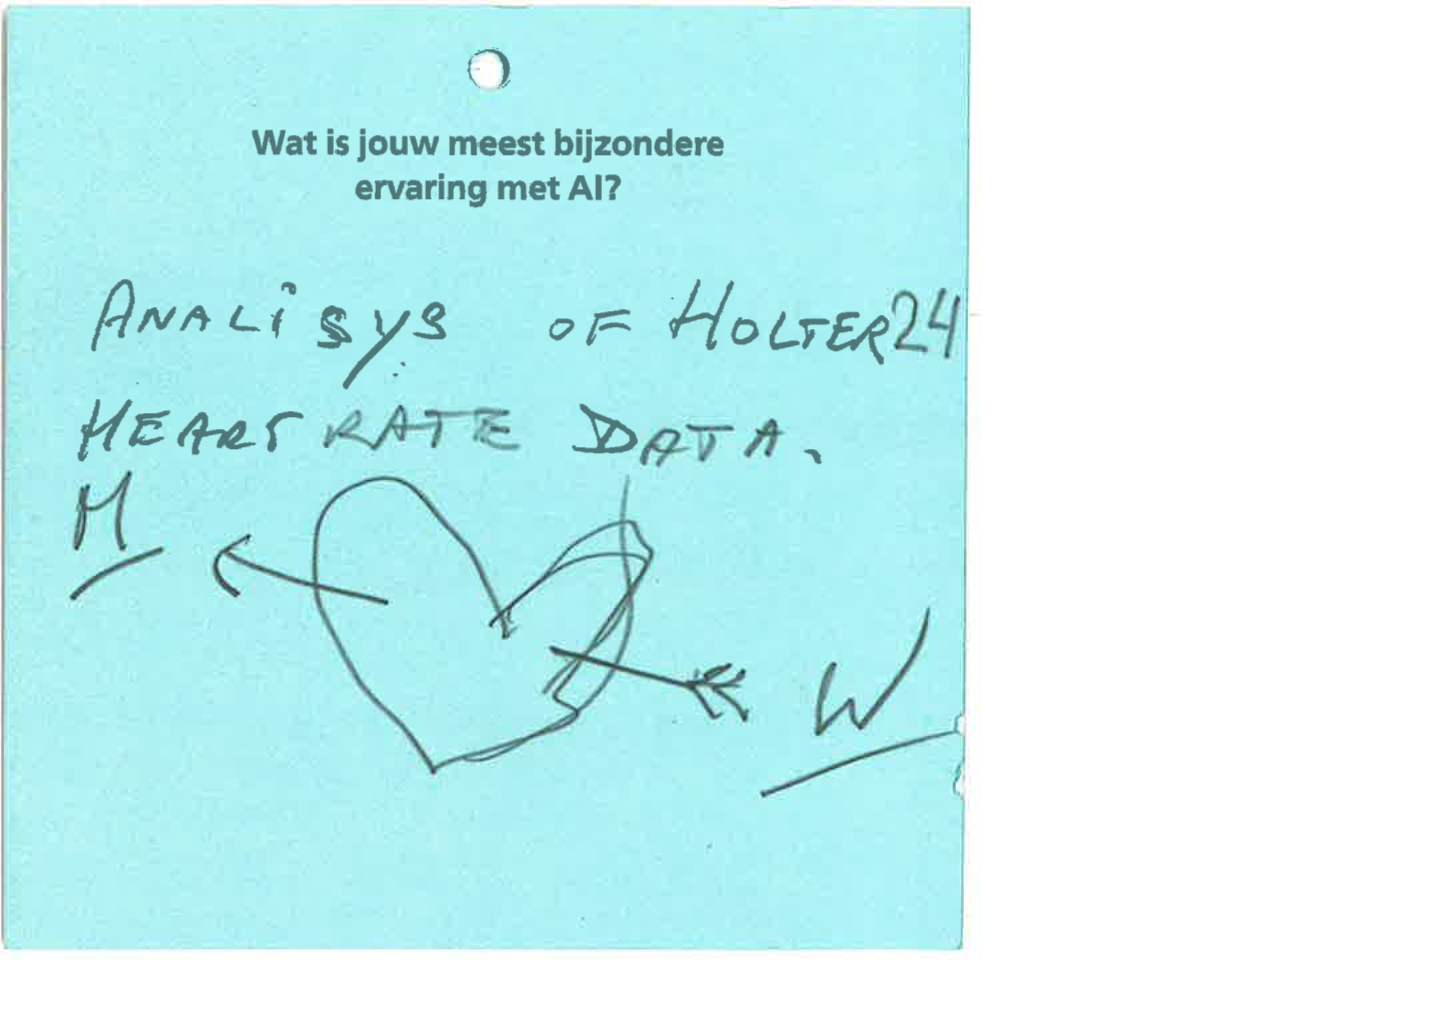 Wat is jouw meest bijzondere
ervaring met AI?
ANALiSYS OF HOLTER24
HEART RATE DATA.
M
W